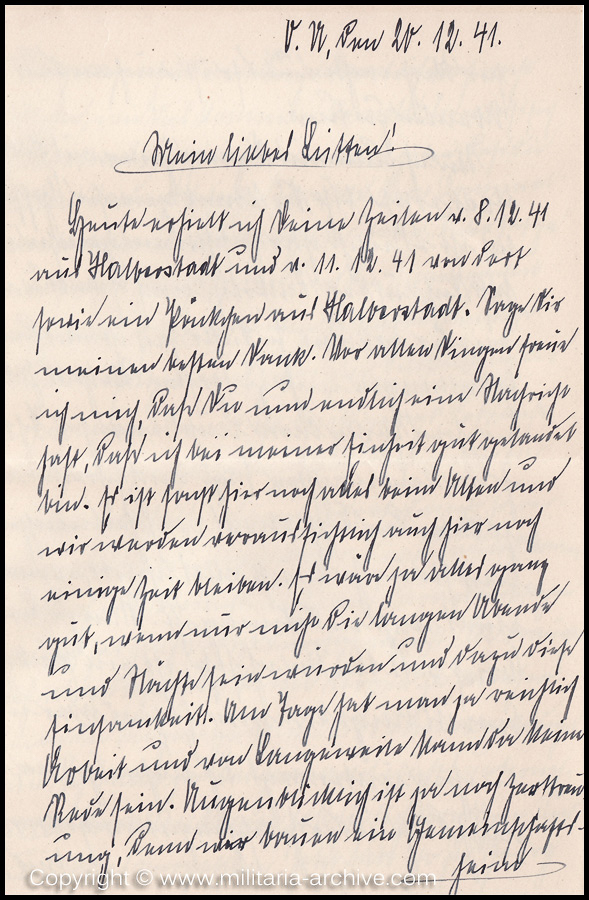 O. U., den 20. 12. 41.
Mein liebes Lütten!
Heute erhielt ich Deine Zeilen v. 8. 12. 41
aus Halberstadt und v. 11. 12. 41 von dort
sowie ein Päckchen aus Halberstadt. Sage Dir
meinen besten Dank. Vor allen Dingen freue
ich mich, daß Du nun endlich eine Nachricht
hast, daß ich bei meiner Einheit gut gelandet
bin. Es ist sonst hier noch alles beim Alten und
wir werden voraussichtlich auch hier noch
einige Zeit bleiben. Es wäre ja alles ganz
gut, wenn nur nicht die langen Abende
und Nächte sein würden und dazu diese
Einsamkeit. Am Tage hat man ja reichlich
Arbeit und von Langeweile kann da keine
Rede sein. Augenblicklich ist ja noch Zerstreu
ung, denn wir bauen ein Gemeinschafts-
heim
Copyright © www.militaria-archive.com